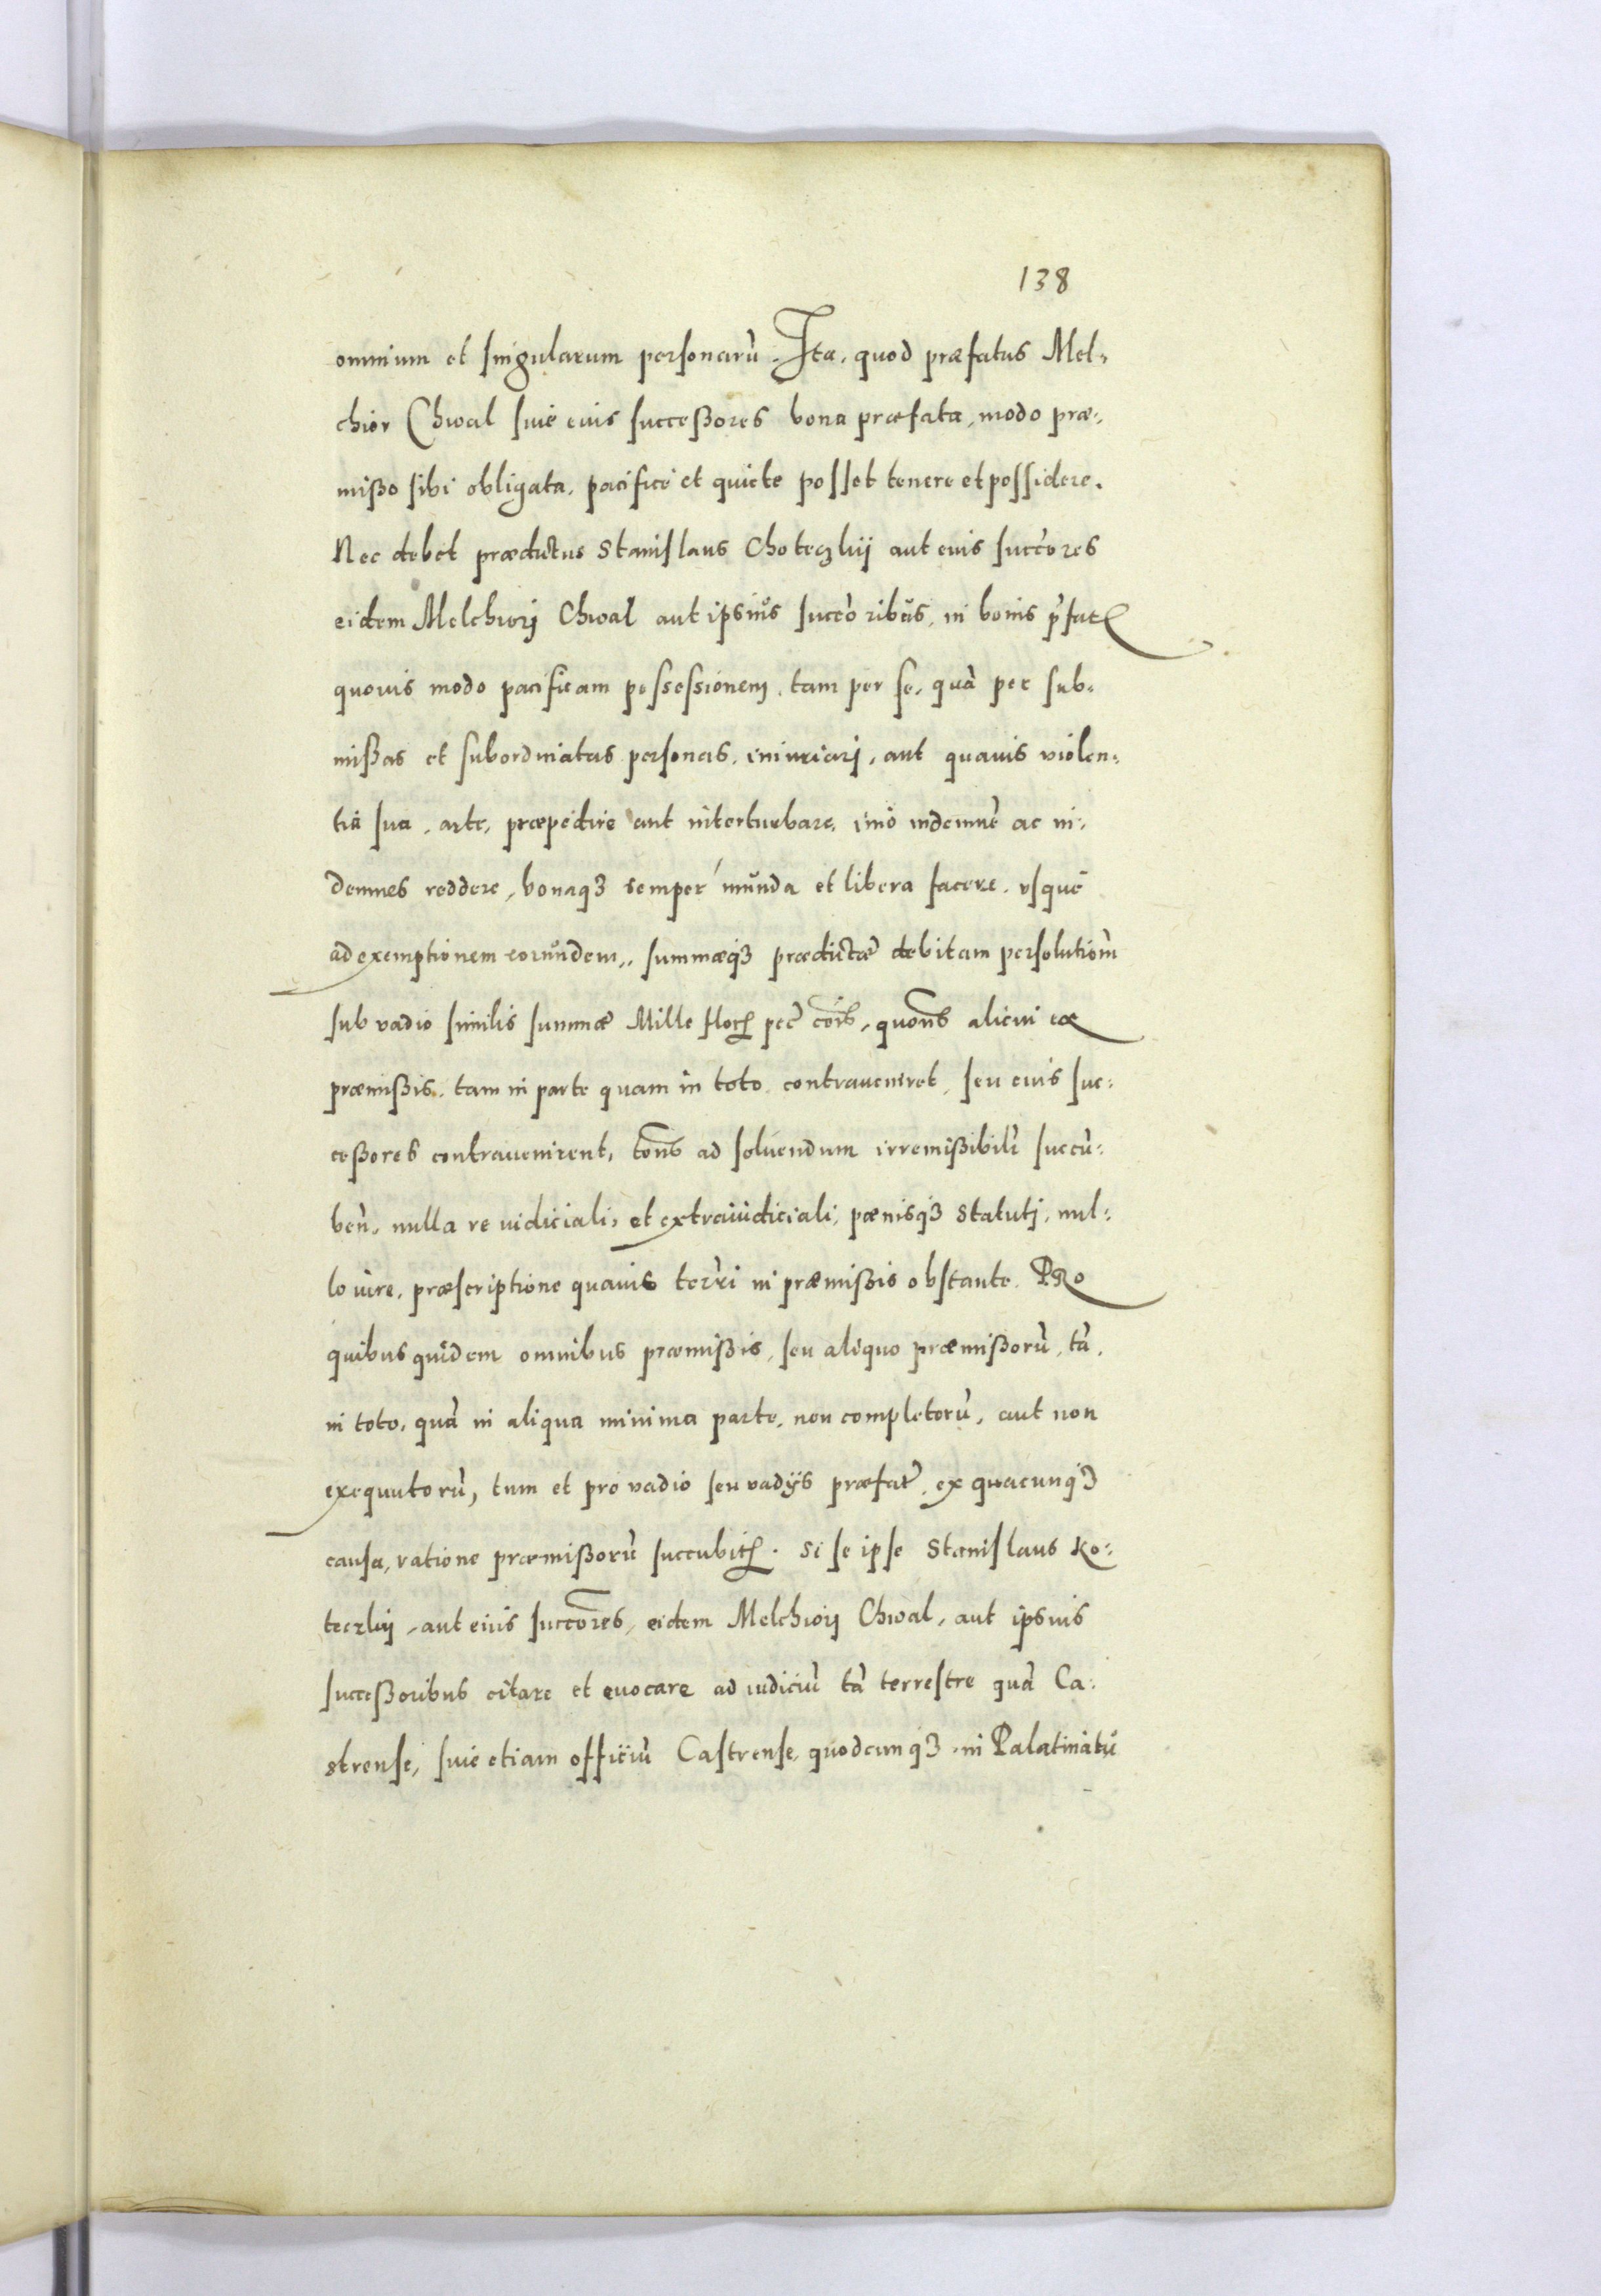 138
omnium et singularum personarũ. Ita, quod præfatus Mel-
chior Chwal siue eius succeßores bona præfata, modo præ-
mißo sibi obligata, pacifice et quiete posset tenere et possidere.
Nec debet prædictus Stanislaus Choteczkij aut eius succ̃ores
eidem Melchiorj Chwal aut ipsius succ̃oribus, in bonis p̃fatꝭ
quouis modo pacificam possessionem, tam per se, quã per sub-
mißas et subordinatas personas, iniuriarj, aut quauis violen-
tia sua, arte, præpedire aut interturbare, imo indemnẽ ac in-
demnes reddere, bonaqꝫ semper munda et libera facere, vsque
ad exemptionem eorundem, summæqꝫ prædictæ debitam persolutionẽ
sub vadio similis summæ Mille florꝭ pec̃ cõis, quoñs alicui eæ
præmißis, tam in parte quam in toto contraueniret, seu eius suc-
ceßores contrauenirent, toñs ad soluendum irremißibilr̃ succũ-
beñ, nulla re iudiciali, et extraiudiciali, pænisqꝫ Statutj, nul-
lo iure, præscriptione quauis terr̃i in præmißis obstante. PRo
quibus quidem omnibus præmißis, seu aliquo præmißorũ, tã,
in toto, quã in aliqua minima parte, non completorũ, aut non
exequutorũ, tum et pro vadio seu vadijs præfat̃, ex quacunqꝫ
causa, ratione præmißorũ succubitꝭ. Si se ipse Stanislaus Ko-
teczkij, aut eius succõres, eidem Melchiorj Chwal, aut ipsius
succeßoribus citare et euocare ad iudiciũ tã terrestre quã Ca-
strense, siue etiam officiũ Castrense, quodcunqꝫ in Palatinatu